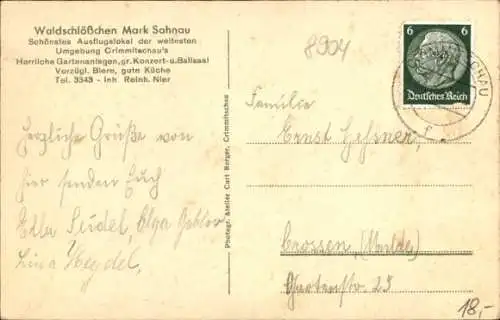 Waldschlößchen Mark Sahnau
Schönstes Ausflugslokal der weitesten
Umgebung Crimmitschau's
Herrliche Gartenanlagen, gr. Konzert- u. Ballsaal
Vorzügl. Biere, gute Küche
Tel. 3343 - Inh. Reinh. Nier
8904
6 6
Deutsches Reich
SCHAU
Photogr. Atelier Carl Berger, Crimmitschau
Herzliche Grüße von
hier senden Euch
Seidel, Olga
Lina
Familie
Ernst
Crossen, (Mulde)
Gartenstr. 23
18,-